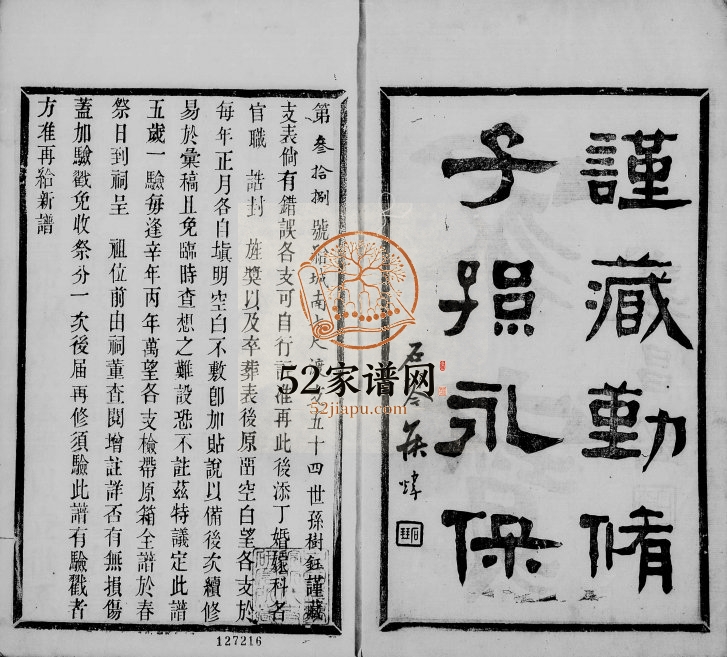 謹藏勤脩
子孫永保
第叁拾捌號
城南
五十四世孫樹鈺謹藏
支表倘有錯誤各支可自行
准再此後添丁婚
科名
官職 誥封 旌奬以及卒葬表後原畱空白望各支於
每年正月各自塡明空白不敷卽加貼說以備後次續修
易於彙稿且免臨時查想之難設恐不註茲特議定此譜
五歲一驗每逢辛年丙年萬望各支檢帶原箱全譜於春
祭日到祠呈 祖位前由祠董查閱增註詳否有無損傷
蓋加驗戳免收祭分一次後屆再修須驗此譜有驗戳者
方准再給新譜
52家谱网
52jiapu.com
127216